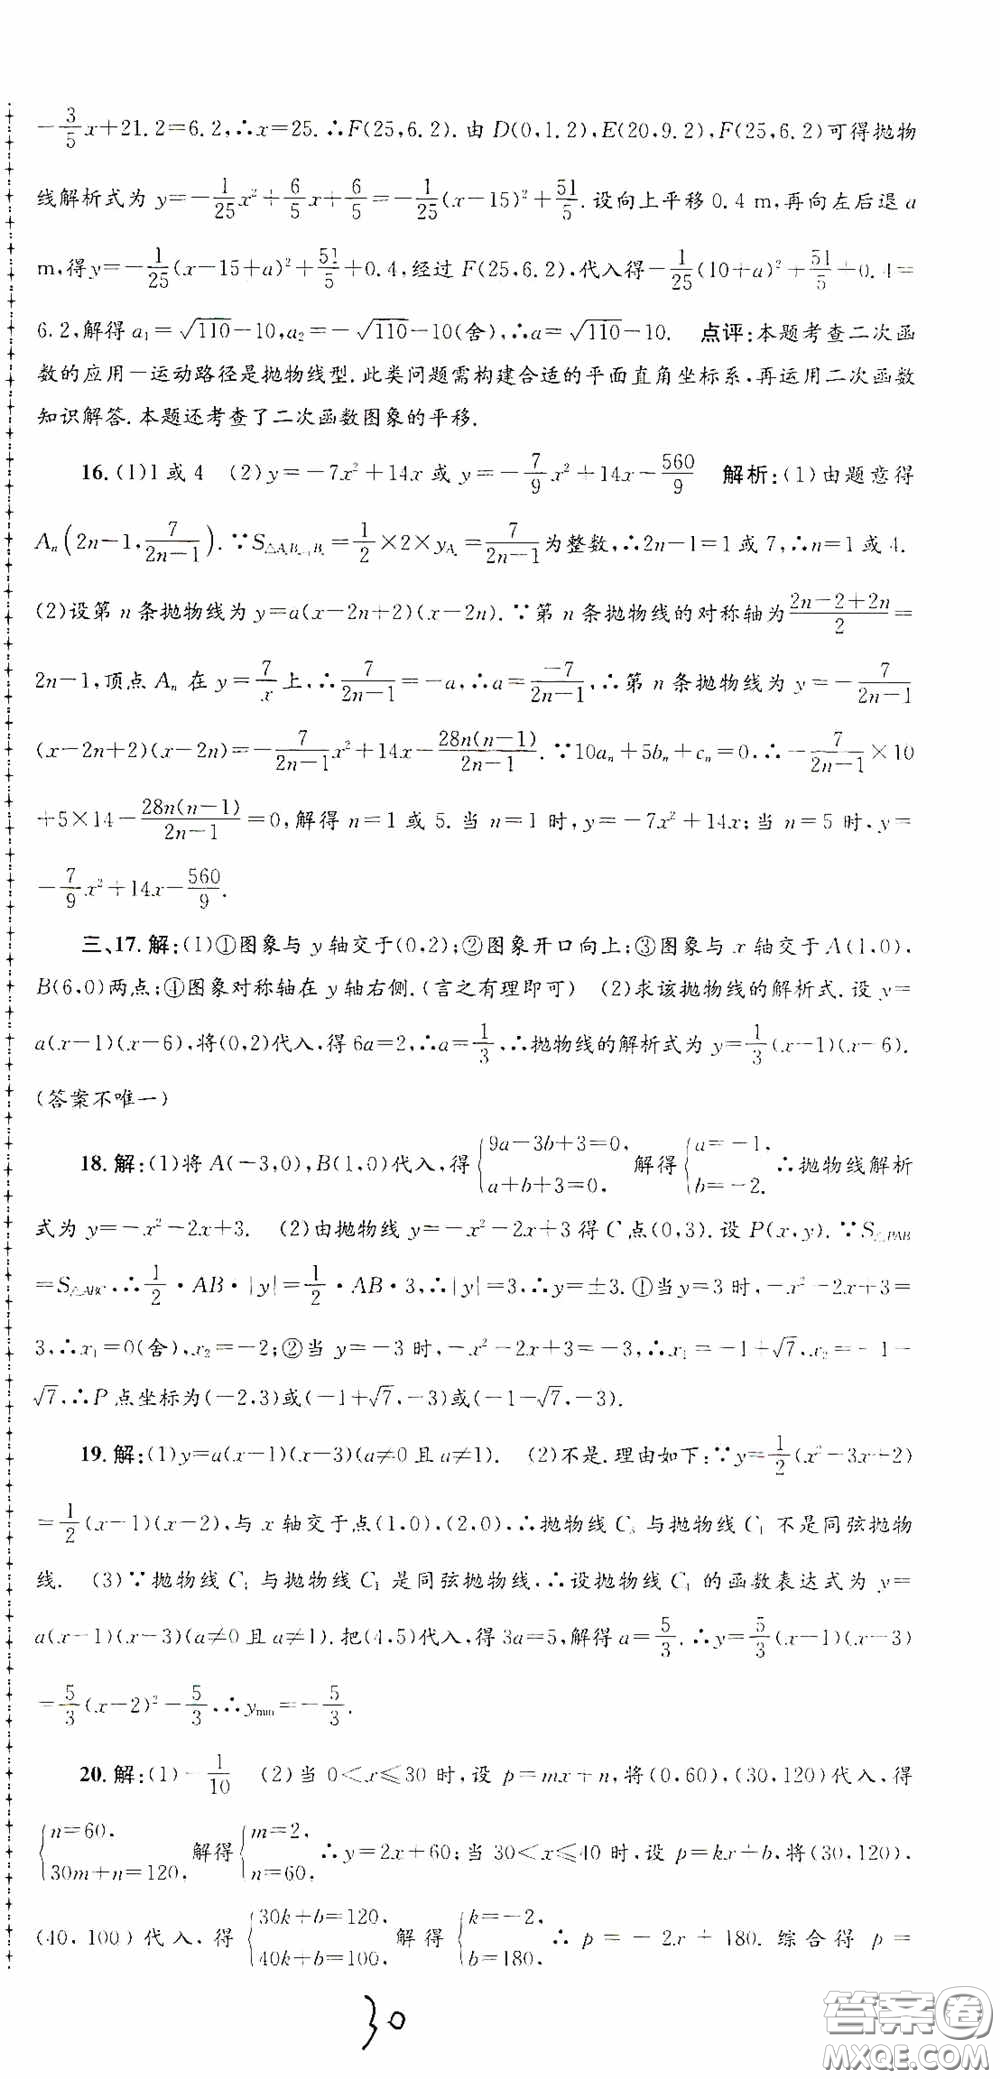 −3/5x+21.2=6.2,∴x=25.∴F(25,6.2).由D(0,1.2),E(20,9.2),F(25,6.2)可得抛物
线解析式为y=−1/25x²+6/5x+6/5=−1/25(x−15)²+51/5.设向上平移0.4 m,再向左后退a
m,得y=−1/25(x−15+a)²+51/5+0.4,经过F(25,6.2),代入得−1/25(10+a)²+51/5+0.4=
6.2,解得a₁=√110−10,a₂=−√110−10(舍),∴a=√110−10. 点评:本题考查二次函
数的应用—运动路径是抛物线型.此类问题需构建合适的平面直角坐标系,再运用二次函数
知识解答.本题还考查了二次函数图象的平移.
16.(1)1或4 (2)y=−7x²+14x或y=−7/9x²+14x−560/9 解析:(1)由题意得
Aₙ(2n−1,7/(2n−1)).∵S△AₙBₙ₋₁Bₙ=1/2×2×yAₙ=7/(2n−1)为整数,∴2n−1=1或7,∴n=1或4.
(2)设第n条抛物线为y=a(x−2n+2)(x−2n).∵第n条抛物线的对称轴为(2n−2+2n)/2=
2n−1,顶点Aₙ在y=7/x上,∴7/(2n−1)=−a,∴a=−7/(2n−1),∴第n条抛物线为y=−7/(2n−1)
(x−2n+2)(x−2n)=−7/(2n−1)x²+14x−28n(n−1)/(2n−1).∵10aₙ+5bₙ+cₙ=0,∴−7/(2n−1)×10
+5×14−28n(n−1)/(2n−1)=0,解得n=1或5.当n=1时,y=−7x²+14x;当n=5时,y=
−7/9x²+14x−560/9.
三、17.解:(1)①图象与y轴交于(0,2);②图象开口向上;③图象与x轴交于A(1,0),
B(6,0)两点;④图象对称轴在y轴右侧.(言之有理即可) (2)求该抛物线的解析式.设y=
a(x−1)(x−6),将(0,2)代入,得6a=2,∴a=1/3,∴抛物线的解析式为y=1/3(x−1)(x−6).
(答案不唯一)
18.解:(1)将A(−3,0),B(1,0)代入,得{9a−3b+3=0, a+b+3=0, 解得{a=−1, b=−2. ∴抛物线解析
式为y=−x²−2x+3. (2)由抛物线y=−x²−2x+3得C点(0,3).设P(x,y).∵S△PAB
=S△ABC,∴1/2·AB·|y|=1/2·AB·3,∴|y|=3,∴y=±3.①当y=3时,−x²−2x+3=
3,∴x₁=0(舍),x₂=−2;②当y=−3时,−x²−2x+3=−3,∴x₁=−1+√7,x₂=−1−
√7,∴P点坐标为(−2,3)或(−1+√7,−3)或(−1−√7,−3).
19.解:(1)y=a(x−1)(x−3)(a≠0且a≠1). (2)不是.理由如下:∵y=1/2(x²−3x+2)
=1/2(x−1)(x−2),与x轴交于点(1,0),(2,0),∴抛物线C₃与抛物线C₁不是同弦抛物
线. (3)∵抛物线C₄与抛物线C₁是同弦抛物线,∴设抛物线C₄的函数表达式为y=
a(x−1)(x−3)(a≠0且a≠1).把(4,5)代入,得3a=5,解得a=5/3.∴y=5/3(x−1)(x−3)
=5/3(x−2)²−5/3,∴y_min=−5/3.
20.解:(1)−1/10 (2)当0<x≤30时,设p=mx+n,将(0,60),(30,120)代入,得
{n=60, 30m+n=120, 解得{m=2, n=60, ∴y=2x+60;当30<x≤40时,设p=kx+b,将(30,120),
(40,100)代入,得{30k+b=120, 40k+b=100, 解得{k=−2, b=180. ∴p=−2x+180.综合得p=
30
答案圈
MXQE.COM